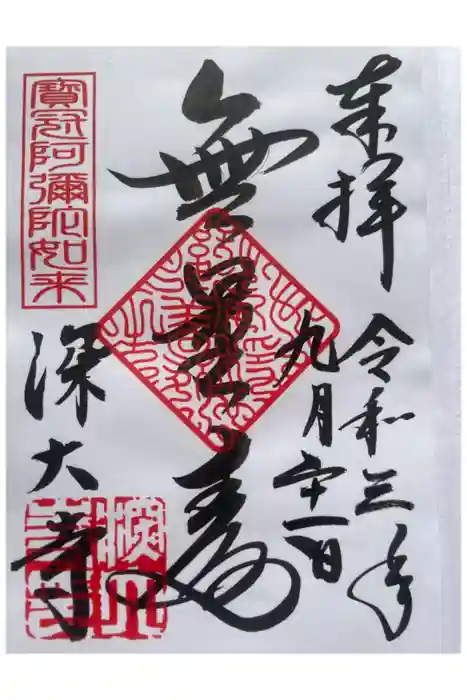 奉拝
令和三年
九月廿一日
無量寿
寶冠阿彌陀如来
深大寺